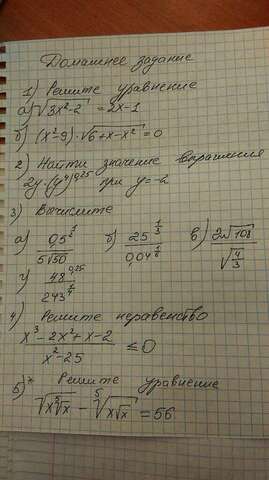 Домашнее задание
1) Решите уравнение
а) √(3x²-2) = 2x-1
б) (x²-9)·√(6+x-x²) = 0
2) Найти значение выражения
2y·(y⁴)^0,25 при y=-2
3) Вычислите
а) 0,5^(1/2) / 5√50 б) 25^(1/3) / 0,04^(1/6) в) 2√108 / √(4/3)
г) 48^0,25 / 243^(1/4)
4) Решите неравенство
(x³-2x²+x-2) / (x²-25) ≤ 0
5)* Решите уравнение
√(x⁵√x) - ⁵√(x√x) = 56